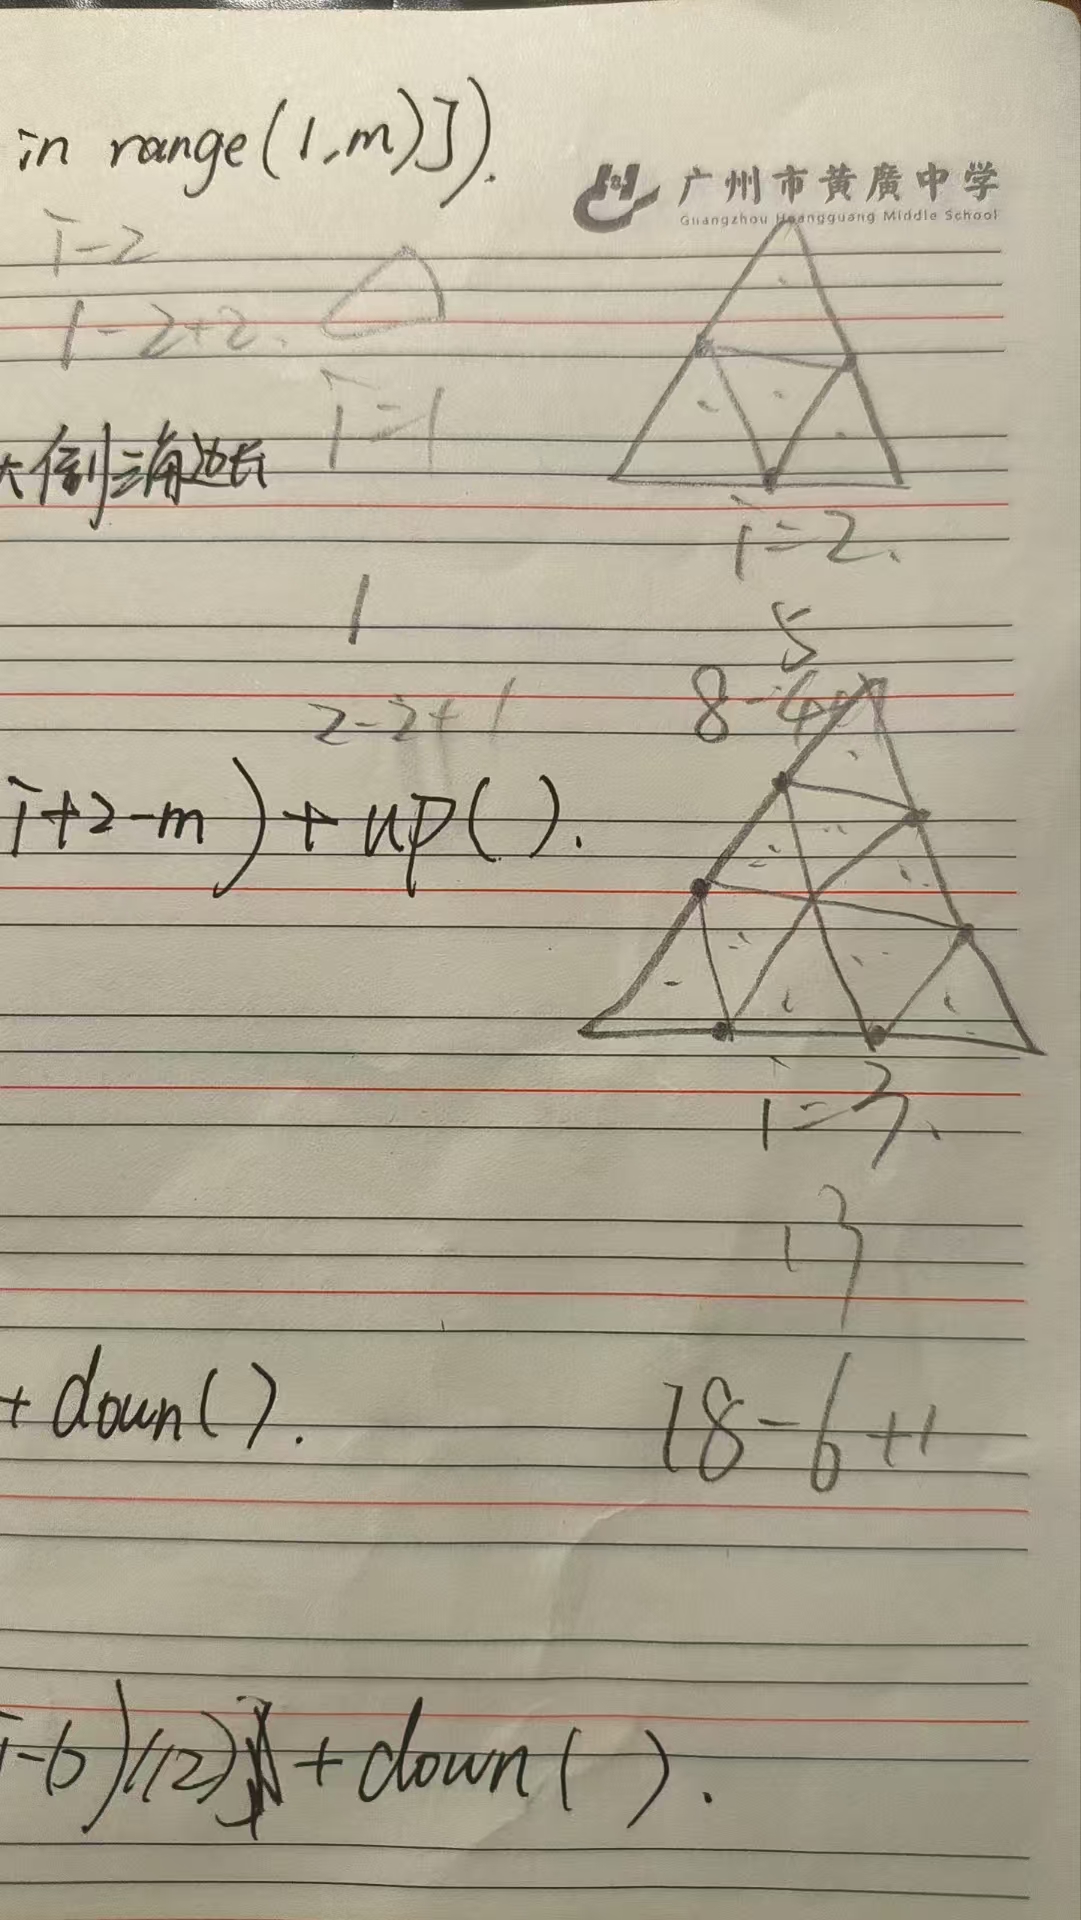 in range(1,m)]).
广州市黄廣中学
Guangzhou Huangguang Middle School
i-2
1-2+2.
i=1
大倒三角边长
i=2.
1
5
2-2+1
8-4+1
i+2-m)+up().
i=3.
13
+down().
18-6+1
i-6)/12)+down().